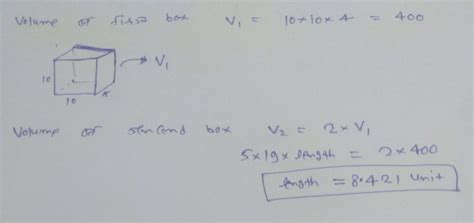 Volume of first box V₁ = 10×10×4 = 400
→ V₁
10
10 4
Volume of second box V₂ = 2×V₁
5×19×length = 2×400
length = 8.421 unit